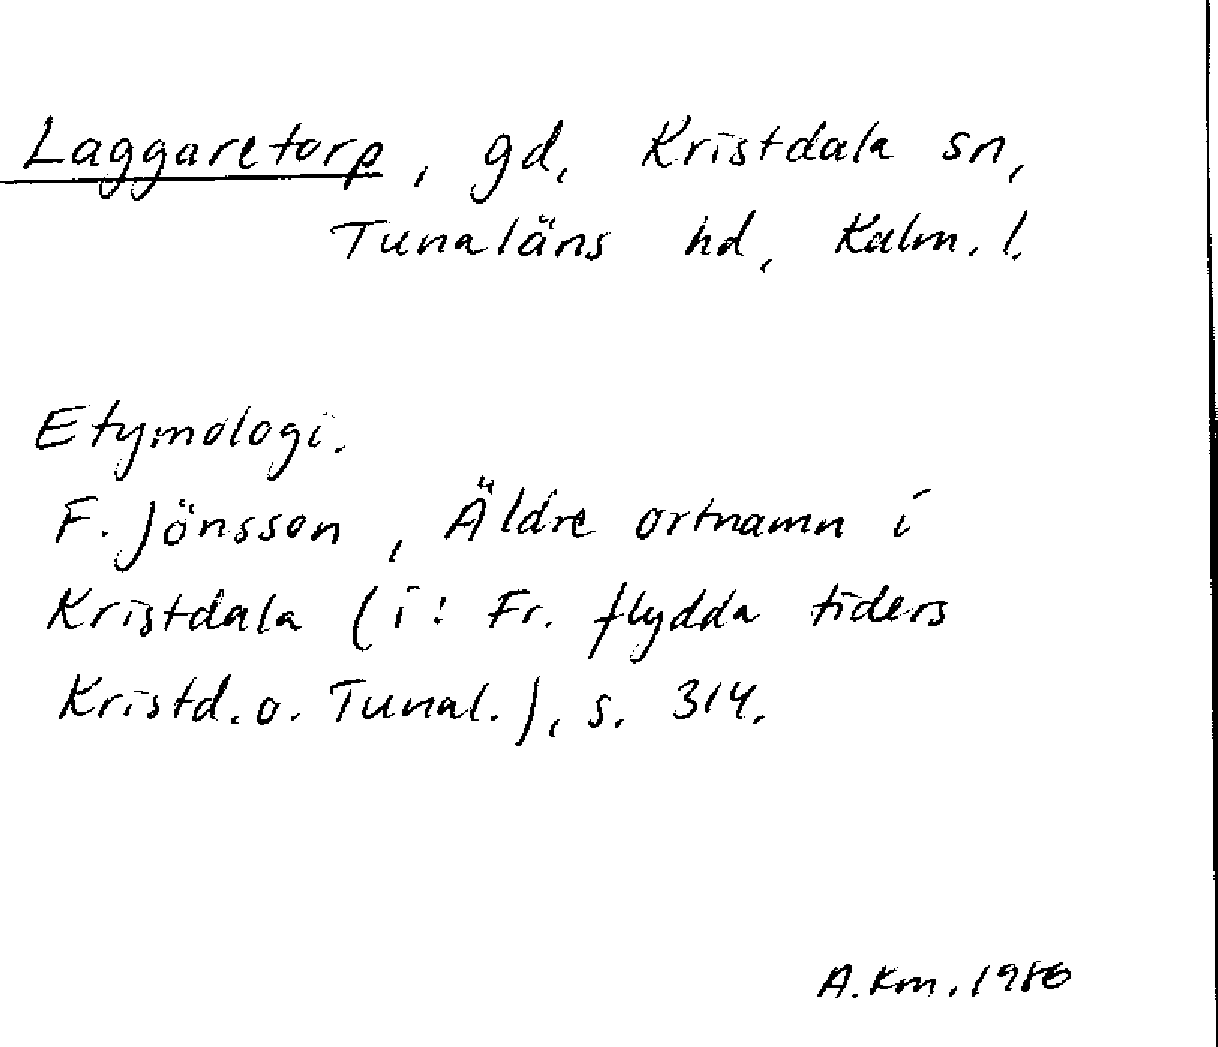 Laggaretorp, gd, Kristdala sn,
Tunaläns hd, Kalm. l.
Etymologi.
F. Jönsson, Äldre ortnamn i
Kristdala (i: Fr. flydda tiders
Kristd. o. Tunal.), s. 314.
A. Km. 1986